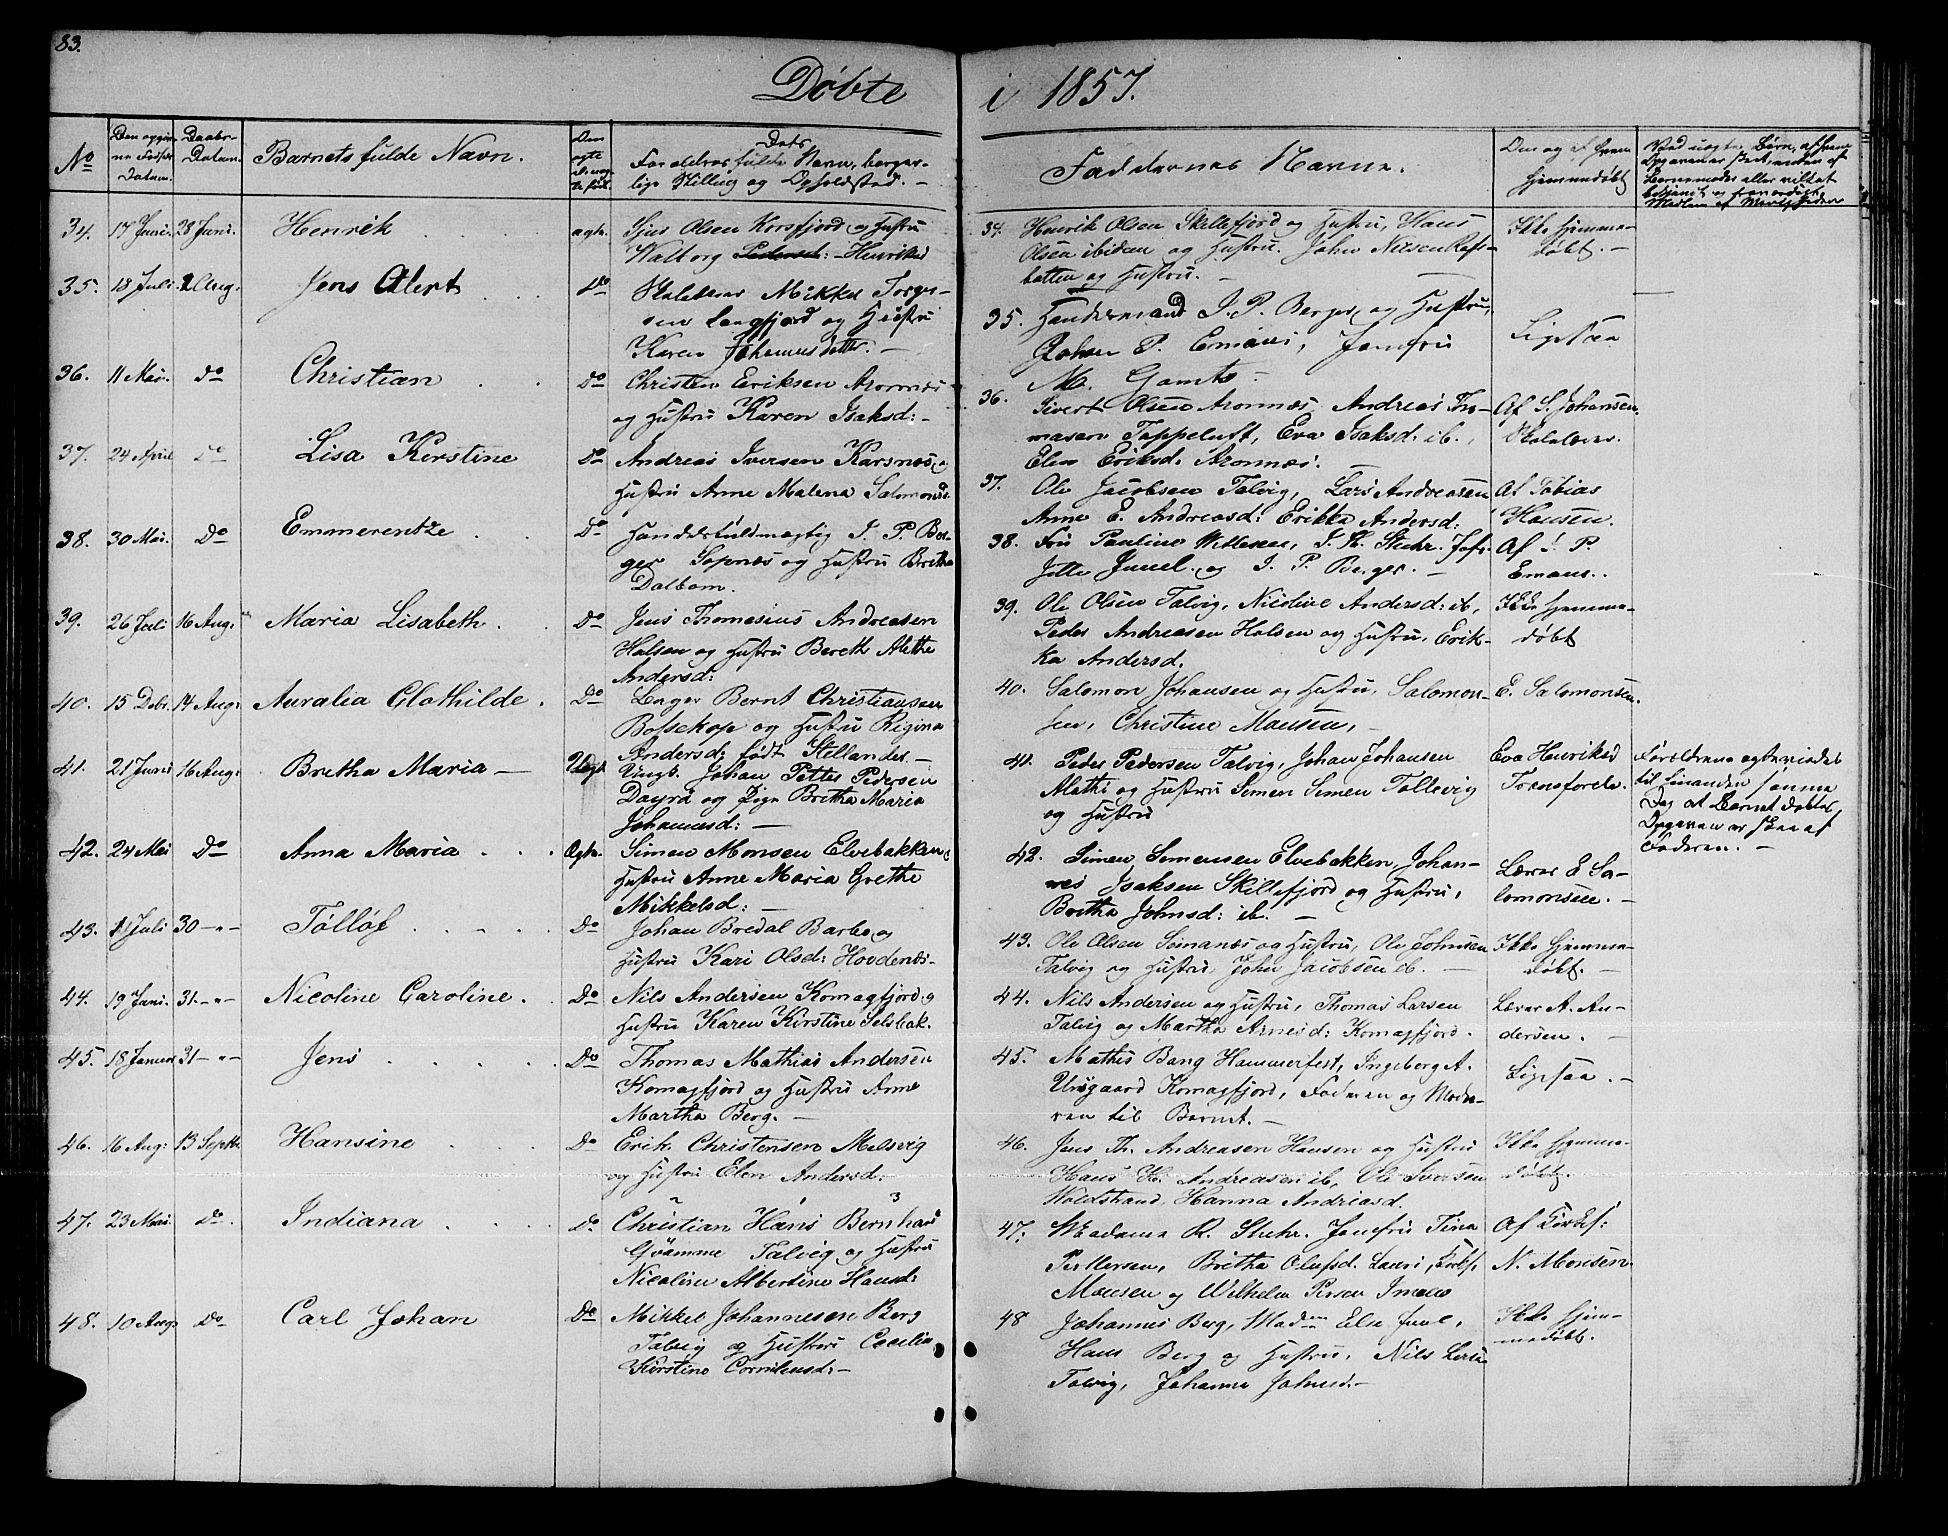 83.
Døbte i 1857.
No
Den opgivne Fødsels Datum.
Daabs-Datum.
Barnets fulde Navn.
Dets
Forældres fulde Navn, borger-
lige Stilling og Opholdssted. –
Faddernes Navne.
Om og af hvem
hjemmedøbt
34. 17 Juni. 28 Juni. Henrik ægte. Olsen Korsfjord og Hustru
Walborg Henriksd
34. Henrik Olsen Skillefjord og Hustru, Hans
Olsen ibidem og Hustru. John Nilsen Raf-
botten og Hustru. –
Ikke hjemme-
døbt. –
35. 18 Juli 2 Aug. Jens Alert Do Skolelærer Mikkel Torge-
sen Langfjord og Hustru
Karen Johannesdatter. –
35. Handelsmand J. P. Berger og Hustru,
Johan P. Emaus, Jomfru
M. Gamst –
Ligesaa
36. 11 Mai. Do Christian Do Christen Eriksen Aronnæs
og Hustru Karen Isaksd: –
36. Sivert Olsen Aronnæs, Andreas Tho-
masen Tappeluft, Eva Isaksd. ib.,
Elen Eriksd. Aronnæs.
Af S. Johansen
Skolelærer.
37. 24 April Do Lisa Kirstine Do Andreas Iversen Karsnæs, og
Hustru Anne Malena Salomonsd.
37. Ole Jacobsen Talvig, Lars Andreasen
Anne E. Andreasd: Erikka Andersd:
Af Tobias
Hansen.
38. 30 Mai. Do Emmerentze Do Handelsfuldmægtig J. P. Ber-
ger Sopnæs og Hustru Bretha
Dalbom.
38. Fru Pauline
Jette Juuel og J. P. Berger. –
Af J. P.
Emaus.
39. 26 Juli 16 Aug: Maria Lisabeth. Do Jens Thomasius Andreasen
Halsen og Hustru Bereth Alethe
Andersd:
39. Ole Olsen Talvig, Nicoline Andersd: ib,
Peder Andreasen Halsen og Hustru, Erik-
ka Andersd.
Ikke hjemme-
døbt
40. 15 Debr. 14 Aug: Auralia Clothilde. Do Bernt Christiansen
Bossekop og Hustru Regina
Andersd: født
40. Salomon Johansen og Hustru, Salomon-
sen, Christine Monsen,
E. Salomonsen.
41. 21 Juni 16 Aug: Bretha Maria – Uægt. Ungk. Johan Petter Pedersen
og Pige Bretha Maria
Johannesd: –
41. Peder Pedersen Talvig, Johan Johansen
Mathi og Hustru Simen Simen Talvig
og Hustru
Eva Henriksd
Forældrene ægteviedes
til hinanden samme
Dag at Barnet døbtes,
Opgaven er skeet af
Faderen. –
42. 24 Mai Do Anna Maria Ægte. Simen Monsen Elvebakken og
Hustru Anne Maria Grethe
Mikkelsd: –
42. Simen Simensen Elvebakken, Johan-
nes Isaksen Skillefjord og Hustru,
Bretha Johnsd: ib. –
Lærer E Sa-
lomonsen. –
43. 11 Juli 30 – " – Tølløf Do Johan Bredal Barbo og
Hustru Kari Olsd: Hovdenæs. –
43. Ole Olsen Simanæs og Hustru, Ole Johnsen
Talvig og Hustru, John Jacobsen ib. –
Ikke hjemme-
døbt. –
44. 19 Juni. 31 – " – Nicoline Caroline. Do Nils Andersen Komagfjord og
Hustru Karen Kirstine Selsbak.
44. Nils Andersen og Hustru, Thomas Larsen
Talvig og Martha Arnesd: Komagfjord.
Lærer A. An-
dersen. –
45. 18 Januar 31 – " – Jens Do Thomas Mathias Andersen
Komagfjord og Hustru Anne
Martha Berg. –
45. Mathis Bang Hammerfest, Ingeborg A.
Komagfjord, Faderen og Mode-
ren til Barnet. –
Ligesaa. –
46. 16 Aug: 13 Septbr. Hansine Do Erik Christensen Melsvig
og Hustru Elen Andersd.
46. Jens Th. Andreasen Hansen og Hustru
Hans H. Andreasen ib, Ole Iversen
Hanna Andreasd.
Ikke hjemme-
døbt.
47. 23 Mai. Do. Indiana Do Christian Hans Bernhard
Qvamme Talvig og Hustru
Nicoline Albertine Hansd:
47. Madame R. Stuhr. Jomfru Tina
Pettersen, Bretha Olufsd.
Monsen og Wilhelm
Af Kirkes:
N. Monsen.
48. 10 Aug: Do Carl Johan Do Mikkel Johannesen Berg
Talvig og Hustru Cecilia
Kirstine Corneliusd: –
48 Johannes Berg, Madm Else Juul,
Hans Berg og Hustru, Nils
Talvig, Johanna Johnsd. –
Ikke hjem-
medøbt.